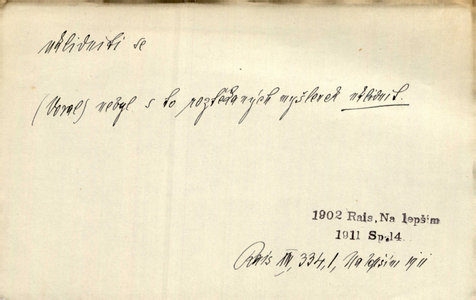 uklidniti se
(Voral) nebyl s to roztěkaných myšlenek uklidnit.
1902 Rais, Na lepším
1911 Sp.14.
Rais IV, 334,1, Na lepším 1911